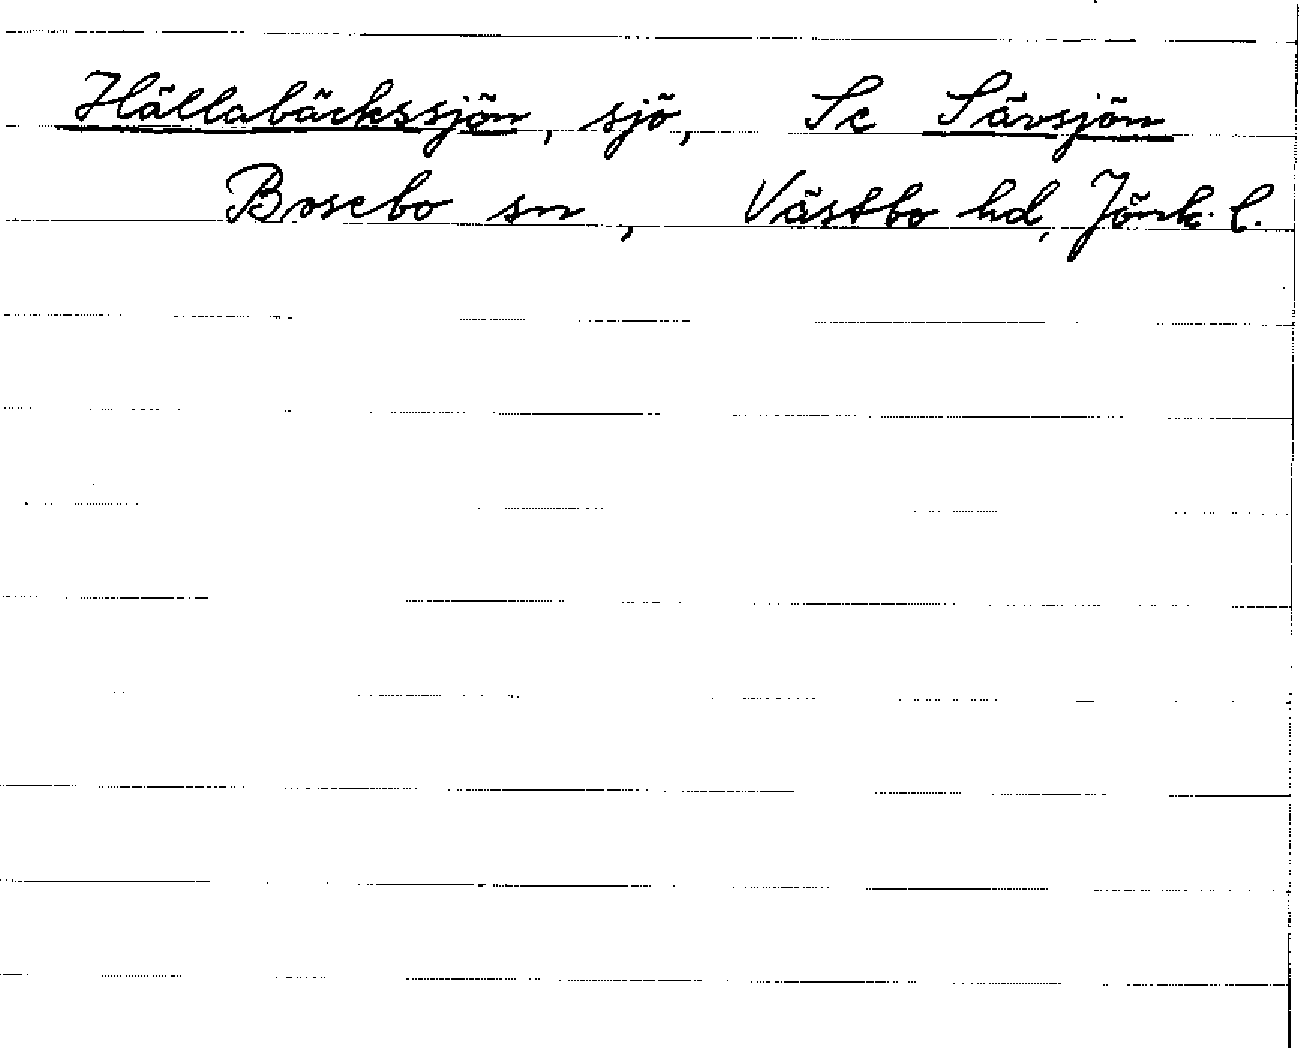 Hällabäckssjön, sjö, Se Sävsjön
Bosebo sn, Västbo hd, Jönk. l.